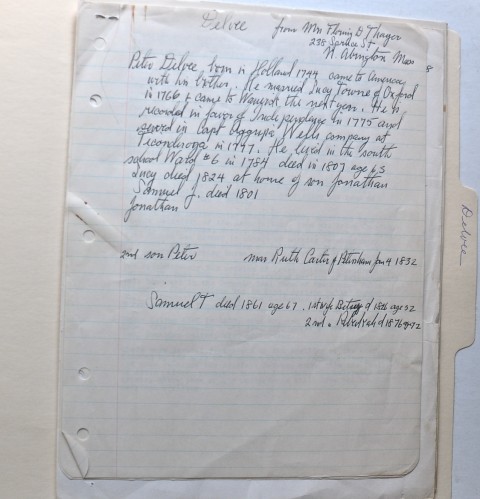 Delvee from Mrs Flemig D Thayer
238 Spruce St
N. Abington Mass
Peter Delvee born in Holland 1744 came to America
with his brother. He married Lucy Towne of Oxford
in 1766 & came to Warwick the next year. He is
recorded in favor of Independence in 1775 and
served in Capt Aggripa Wells company at
Ticonderoga in 1777. He lived in the south
school Ward #6 in 1784 died in 1807 age 63
Lucy died 1824 at home of son Jonathan
Samuel J. died 1801
Jonathan
2nd son Peter mar Ruth Carter of Petersham Jan 4 1832
Samuel T died 1861 age 67. 1st wife Betsey d 1826 age 32
2nd " d 1876 age 72
Delvee